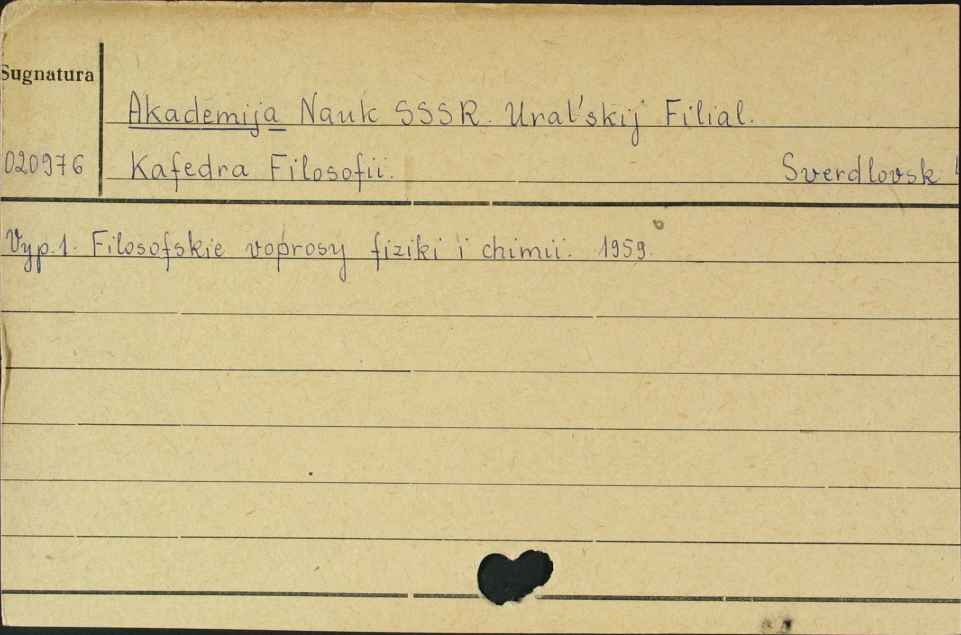 Sugnatura
Akademija Nauk SSSR. Ural'skij Filial.
020976 Kafedra Filosofii. Sverdlovsk
Vyp.1. Filosofskie voprosy fiziki i chimii. 1959.